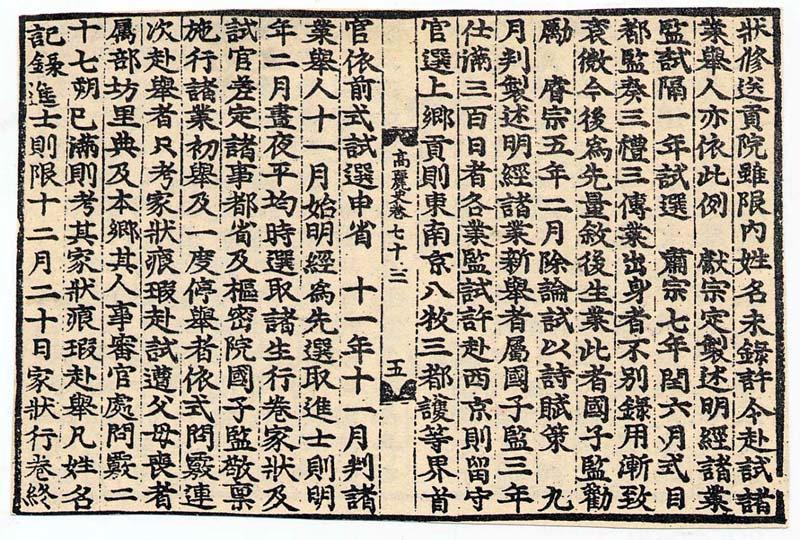 狀修送貢院雖限內姓名未錄許令赴試諸
業舉人亦依此例　獻宗定製述明經諸業
監試隔一年試選　肅宗七年閏六月式目
都監奏三禮三傳業出身者不別錄用漸致
衰微今後爲先量敘後生業此者國子監勸
勵　睿宗五年二月除論試以詩賦策　九
月判製述明經諸業新舉者屬國子監三年
仕滿三百日者各業監試許赴西京則留守
官選上鄕貢則東南京八牧三都護等界首
高麗史卷七十三　五
官依前式試選申省　十一年十一月判諸
業舉人十一月始明經爲先選取進士則明
年二月晝夜平均時選取諸生行卷家狀及
試官差定諸事都省及樞密院國子監敬稟
施行諸業初舉及一度停舉者依式問覈連
次赴舉者只考家狀痕瑕赴試遵父母喪者
屬部坊里典及本鄕其人事審官處問覈二
十七朔已滿則考其家狀痕瑕赴舉凡姓名
記錄進士則限十二月二十日家狀行卷終